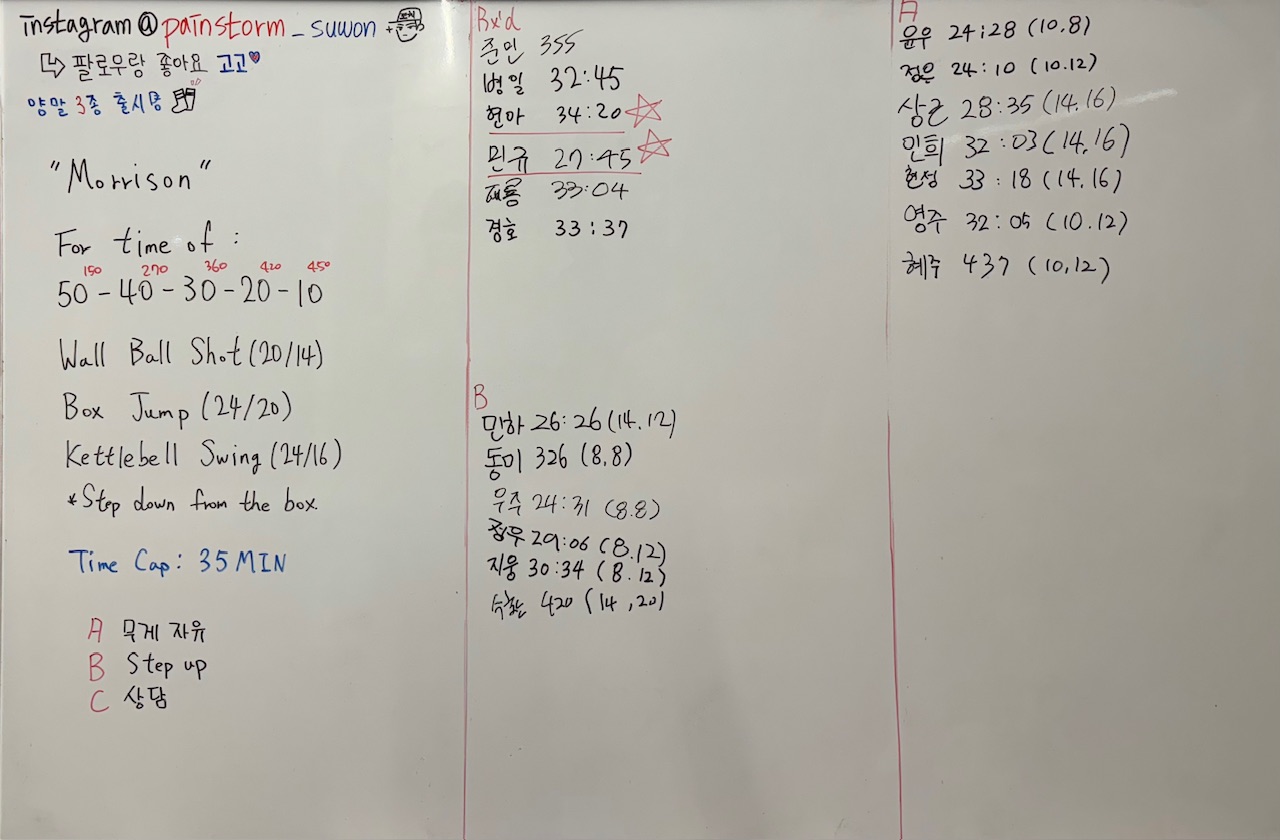 instagram@painstorm_suwon
팔로우랑 좋아요 고고
양말 3종 출시중
"Morrison"
For time of :
150 270 360 420 450
50 - 40 - 30 - 20 - 10
Wall Ball Shot (20/14)
Box Jump (24/20)
Kettlebell Swing (24/16)
*Step down from the box.
Time Cap: 35 MIN
A 무게 자유
B Step up
C 상담
Rx'd
준민 355
병일 32:45
현아 34:20
민규 27:45
재용 33:04
경호 33:37
B
민하 26:26 (14.12)
동미 326 (8.8)
우주 24:31 (8.8)
정우 29:06 (8.12)
지웅 30:34 (8.12)
420 (14,20)
A
윤우 24:28 (10.8)
정은 24:10 (10.12)
상근 28:35 (14.16)
민희 32:03 (14.16)
현성 33:18 (14.16)
영주 32:05 (10.12)
혜주 437 (10,12)